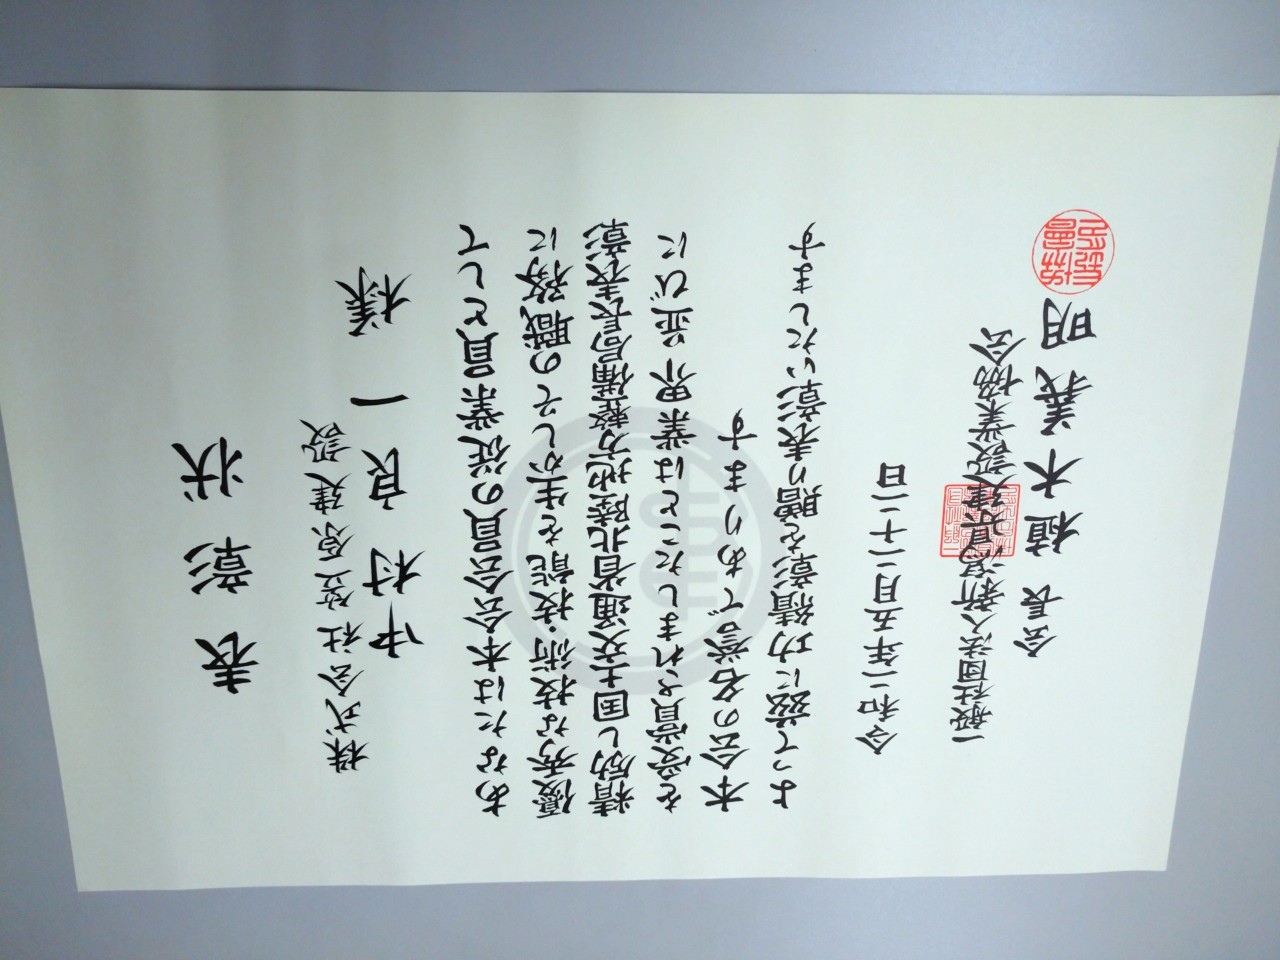 表彰状
株式会社笠原建設
中村良一様
あなたは本会会員の従業員として
優秀な技術・技能を生かしその職務に
精励し国土交通省北陸地方整備局長表彰
を受賞されましたことは業界並びに
本会の名誉であります
よって茲に功績章を贈り表彰いたします
令和二年五月二十二日
一般社団法人新潟県建設業協会
会長植木義明